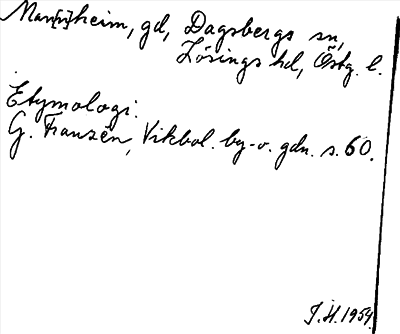 Man[n]heim, gd, Dagsbergs sn,
Lösings hd, Östg. l.
Etymologi:
G. Franzén, Vikbol. by-o. gdn. s. 60.
J. H. 1959.